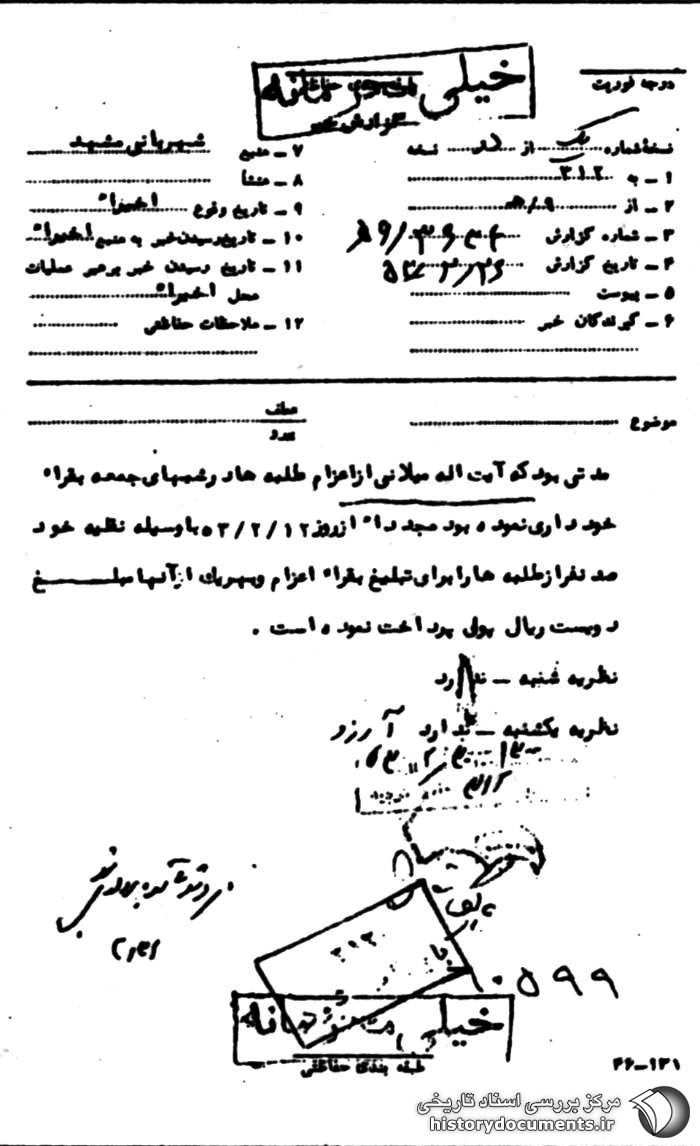 خیلی محرمانه
گزارش خبر
درجه فوریت
نسخهٔ شماره یک از نسخه
۱ ـ به ۳۱۲
۲ ـ از ۹/ه‍
۳ ـ شماره گزارش
۴ ـ تاریخ گزارش
۵ ـ پیوست
۶ ـ گیرندگان خبر
۷ ـ منبع شهربانی مشهد
۸ ـ منشأ
۹ ـ تاریخ وقوع اخیرا"
۱۰ ـ تاریخ رسیدن خبر به منبع اخیرا"
۱۱ ـ تاریخ رسیدن خبر برهبر عملیات
محل اخیرا"
۱۲ ـ ملاحظات حفاظتی
موضوع
عطف
پیرو
مدتی بود که آیت اله میلانی از اعزام طلبه ها در شبهای جمعه بقراء
خودداری نموده بود مجددا" از روز ۵۳/۲/۱۲ باوسیله نقلیه خود
صد نفر از طلبه ها را برای تبلیغ بقراء اعزام و بهر یک از آنها مبلــــغ
دویست ریال پول پرداخت نموده است .
نظریه شنبه ـ ندارد
نظریه یکشنبه ـ ندارد آرزو
۳۱۲
۱۰۵۹۹
خیلی محرمانه
طبقه بندی حفاظتی
۴۶ـ۱۳۱
مرکز بررسی اسناد تاریخی
historydocuments.ir